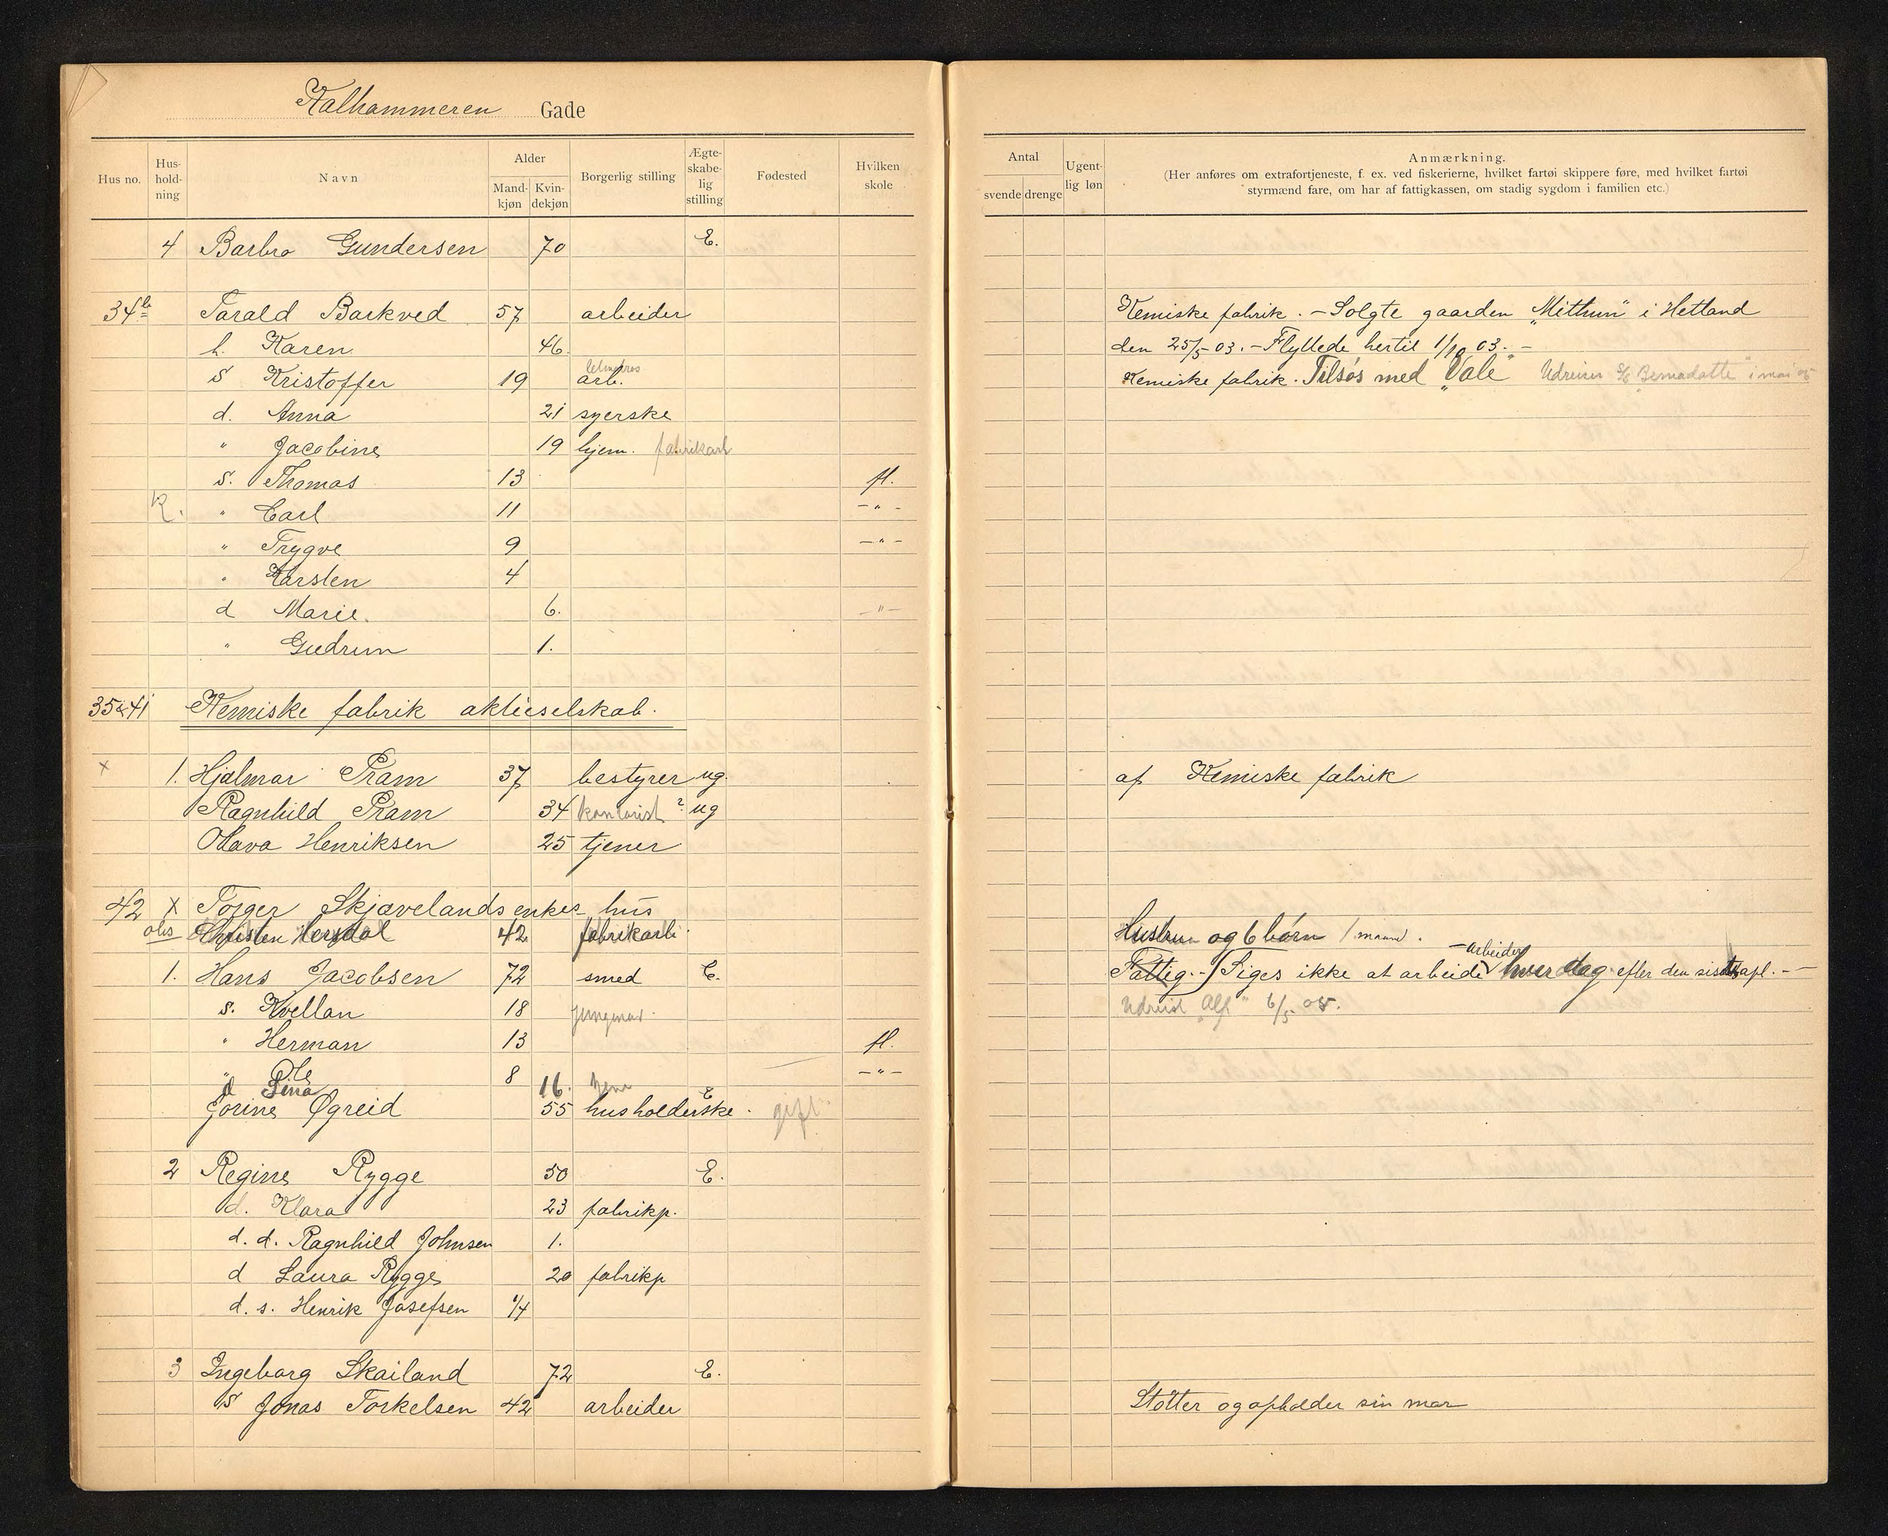 Kalhammeren Gade
Hus no. Hus-hold-ning Navn Alder Mand-kjøn Kvin-dekjøn Borgerlig stilling Ægte-skabe-lig stilling Fødested Hvilken skole
Antal svende drenge Ugent-lig løn Anmærkning.
(Her anføres om extrafortjeneste, f. ex. ved fiskerierne, hvilket fartøi skippere føre, med hvilket fartøi
styrmænd fare, om har af fattigkassen, om stadig sygdom i familien etc.)
4 Barbro Gundersen 70 E.
34b Tarald Barkved 57 arbeider Kemiske fabrik. - Solgte gaarden "Mittun" i Hetland
h. Karen 46 den 25/5 03. - Flyttede hertil 1/10 03. -
s Kristoffer 19 arb. Kemiske fabrik. Tilsøs med "Vale" Udreiser S/S "Bernadotte" i mai 05
d. Anna 21 syerske
" Jacobine 19 hjem. fabrikarb
s. Thomas 13 fl.
K. " Carl 11 -"-
" Trygve 9 -"-
" Karsten 4
d Marie. 6. -"-
" Gudrun 1.
35&41 Kemiske fabrik aktieselskab.
x 1. Hjalmar Pram 37 bestyrer ug. af Kemiske fabrik
Ragnhild Pram 34 kontorist ? ug
Olava Henriksen 25 tjener
42 x Torger Skjævelands enkes hus
obs Christen Hersdal 42 fabrikarb. Hustru og 6 børn
1. Hans Jacobsen 72 smed E. Fattig. - Siges ikke at arbeide - arbeider hver dag efter den siste opl. - -
s. Kvellan 18 jungmand. Udreist "Alf" 6/5 05.
" Herman 13 fl.
" Ole 8 -"-
d Sina 16. hjem
Jorine Øgreid 55 husholderske. E gift
2 Regine Rygge 50 E.
d. Klara 23 fabrikp.
d. d. Ragnhild Johnsen 1.
d Laura Rygge 20 fabrikp
d. s. Henrik Josefsen 1/4
3 Ingeborg Skailand 72 E.
s Jonas Torkelsen 42 arbeider Støtter og opholder sin mor